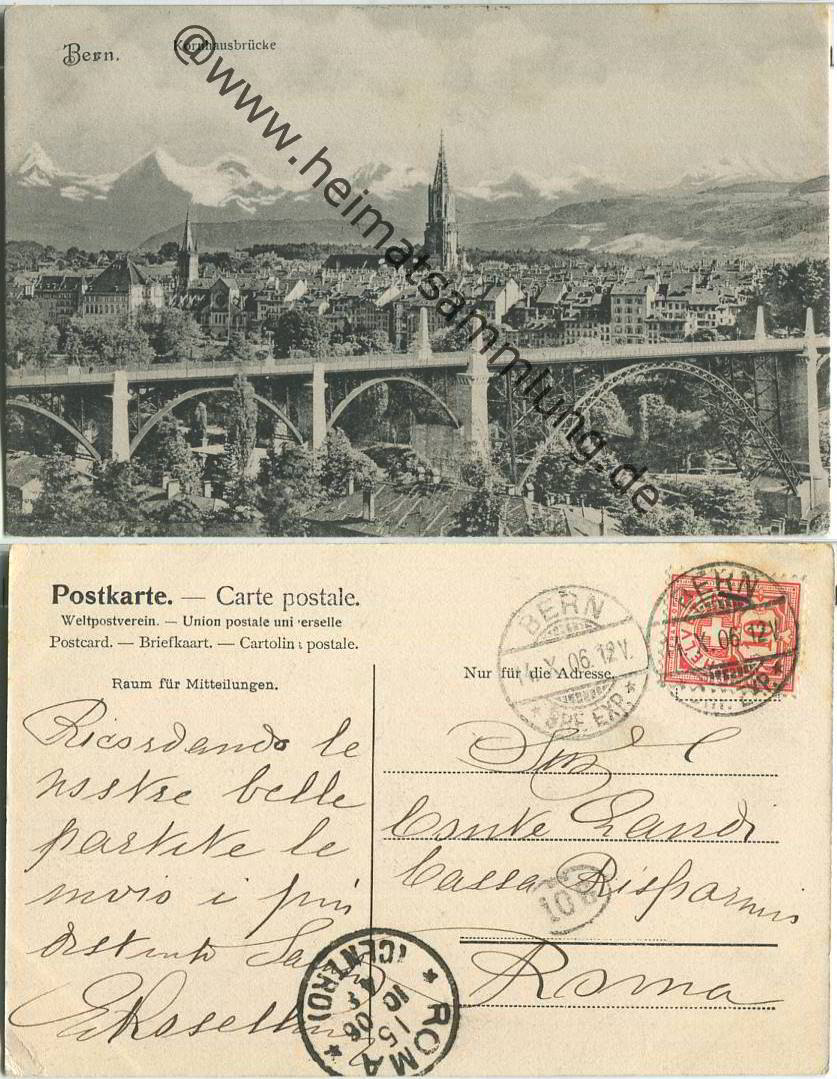 Bern.
Kornhausbrücke
@www.heimatsammlung.de
Postkarte. — Carte postale.
Weltpostverein. — Union postale uni erselle
Postcard. — Briefkaart. — Cartolin postale.
Raum für Mitteilungen.
Nur für die Adresse.
BERN
14.X.06.12V.
* BRF. EXP. *
BERN
14.X.06.12V.
EXP. *
HELV
10
Ricordando le
nostre belle
partite le
invio i più
distinti
Conte
Cassa Risparmio
Roma
10B
* ROMA *
(CENTRO)
15
10
06